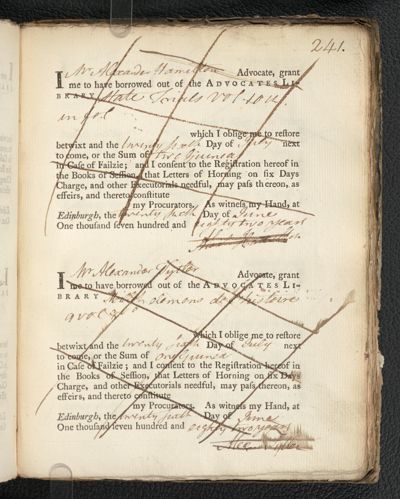 241.
I Mr Alexander Hamilton Advocate, grant
me to have borrowed out of the ADVOCATES LI-
BRARY State Trials Vol. 10
in fol.
which I oblige me to reſtore
betwixt and the twenty sixth Day of July next
to come, or the Sum of two Guineas
in Caſe of Failzie; and I conſent to the Regiſtration hereof in
the Books of Seſſion, that Letters of Horning on ſix Days
Charge, and other Executorials needful, may paſs thereon, as
effeirs, and thereto conſtitute
my Procurators. As witneſs my Hand, at
Edinburgh, the twenty sixth Day of June
One thouſand ſeven hundred and eighty two years
I Mr Alexander Tytler Advocate, grant
me to have borrowed out of the ADVOCATES LI-
BRARY elemens de l'histoire
which I oblige me to reſtore
betwixt and the twenty sixth Day of July next
to come, or the Sum of one Guinea
in Caſe of Failzie; and I conſent to the Regiſtration hereof in
the Books of Seſſion, that Letters of Horning on ſix Days
Charge, and other Executorials needful, may paſs thereon, as
effeirs, and thereto conſtitute
my Procurators. As witneſs my Hand, at
Edinburgh, the twenty sixth Day of June
One thouſand ſeven hundred and eighty two years